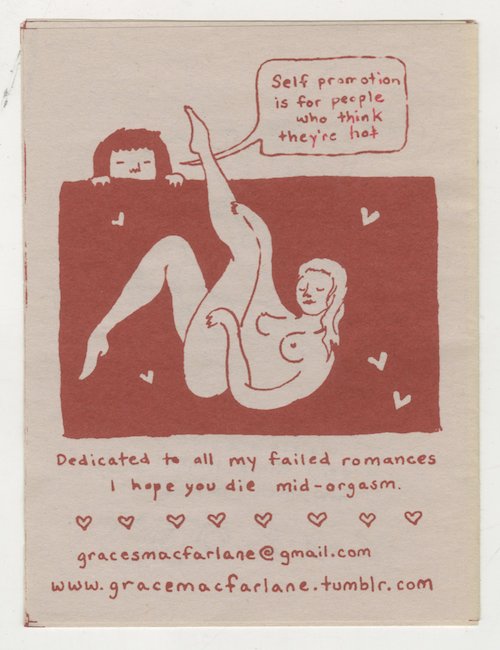 Self promotion
is for people
who think
they're hot
Dedicated to all my failed romances
I hope you die mid-orgasm.
gracesmacfarlane@gmail.com
www.gracemacfarlane.tumblr.com